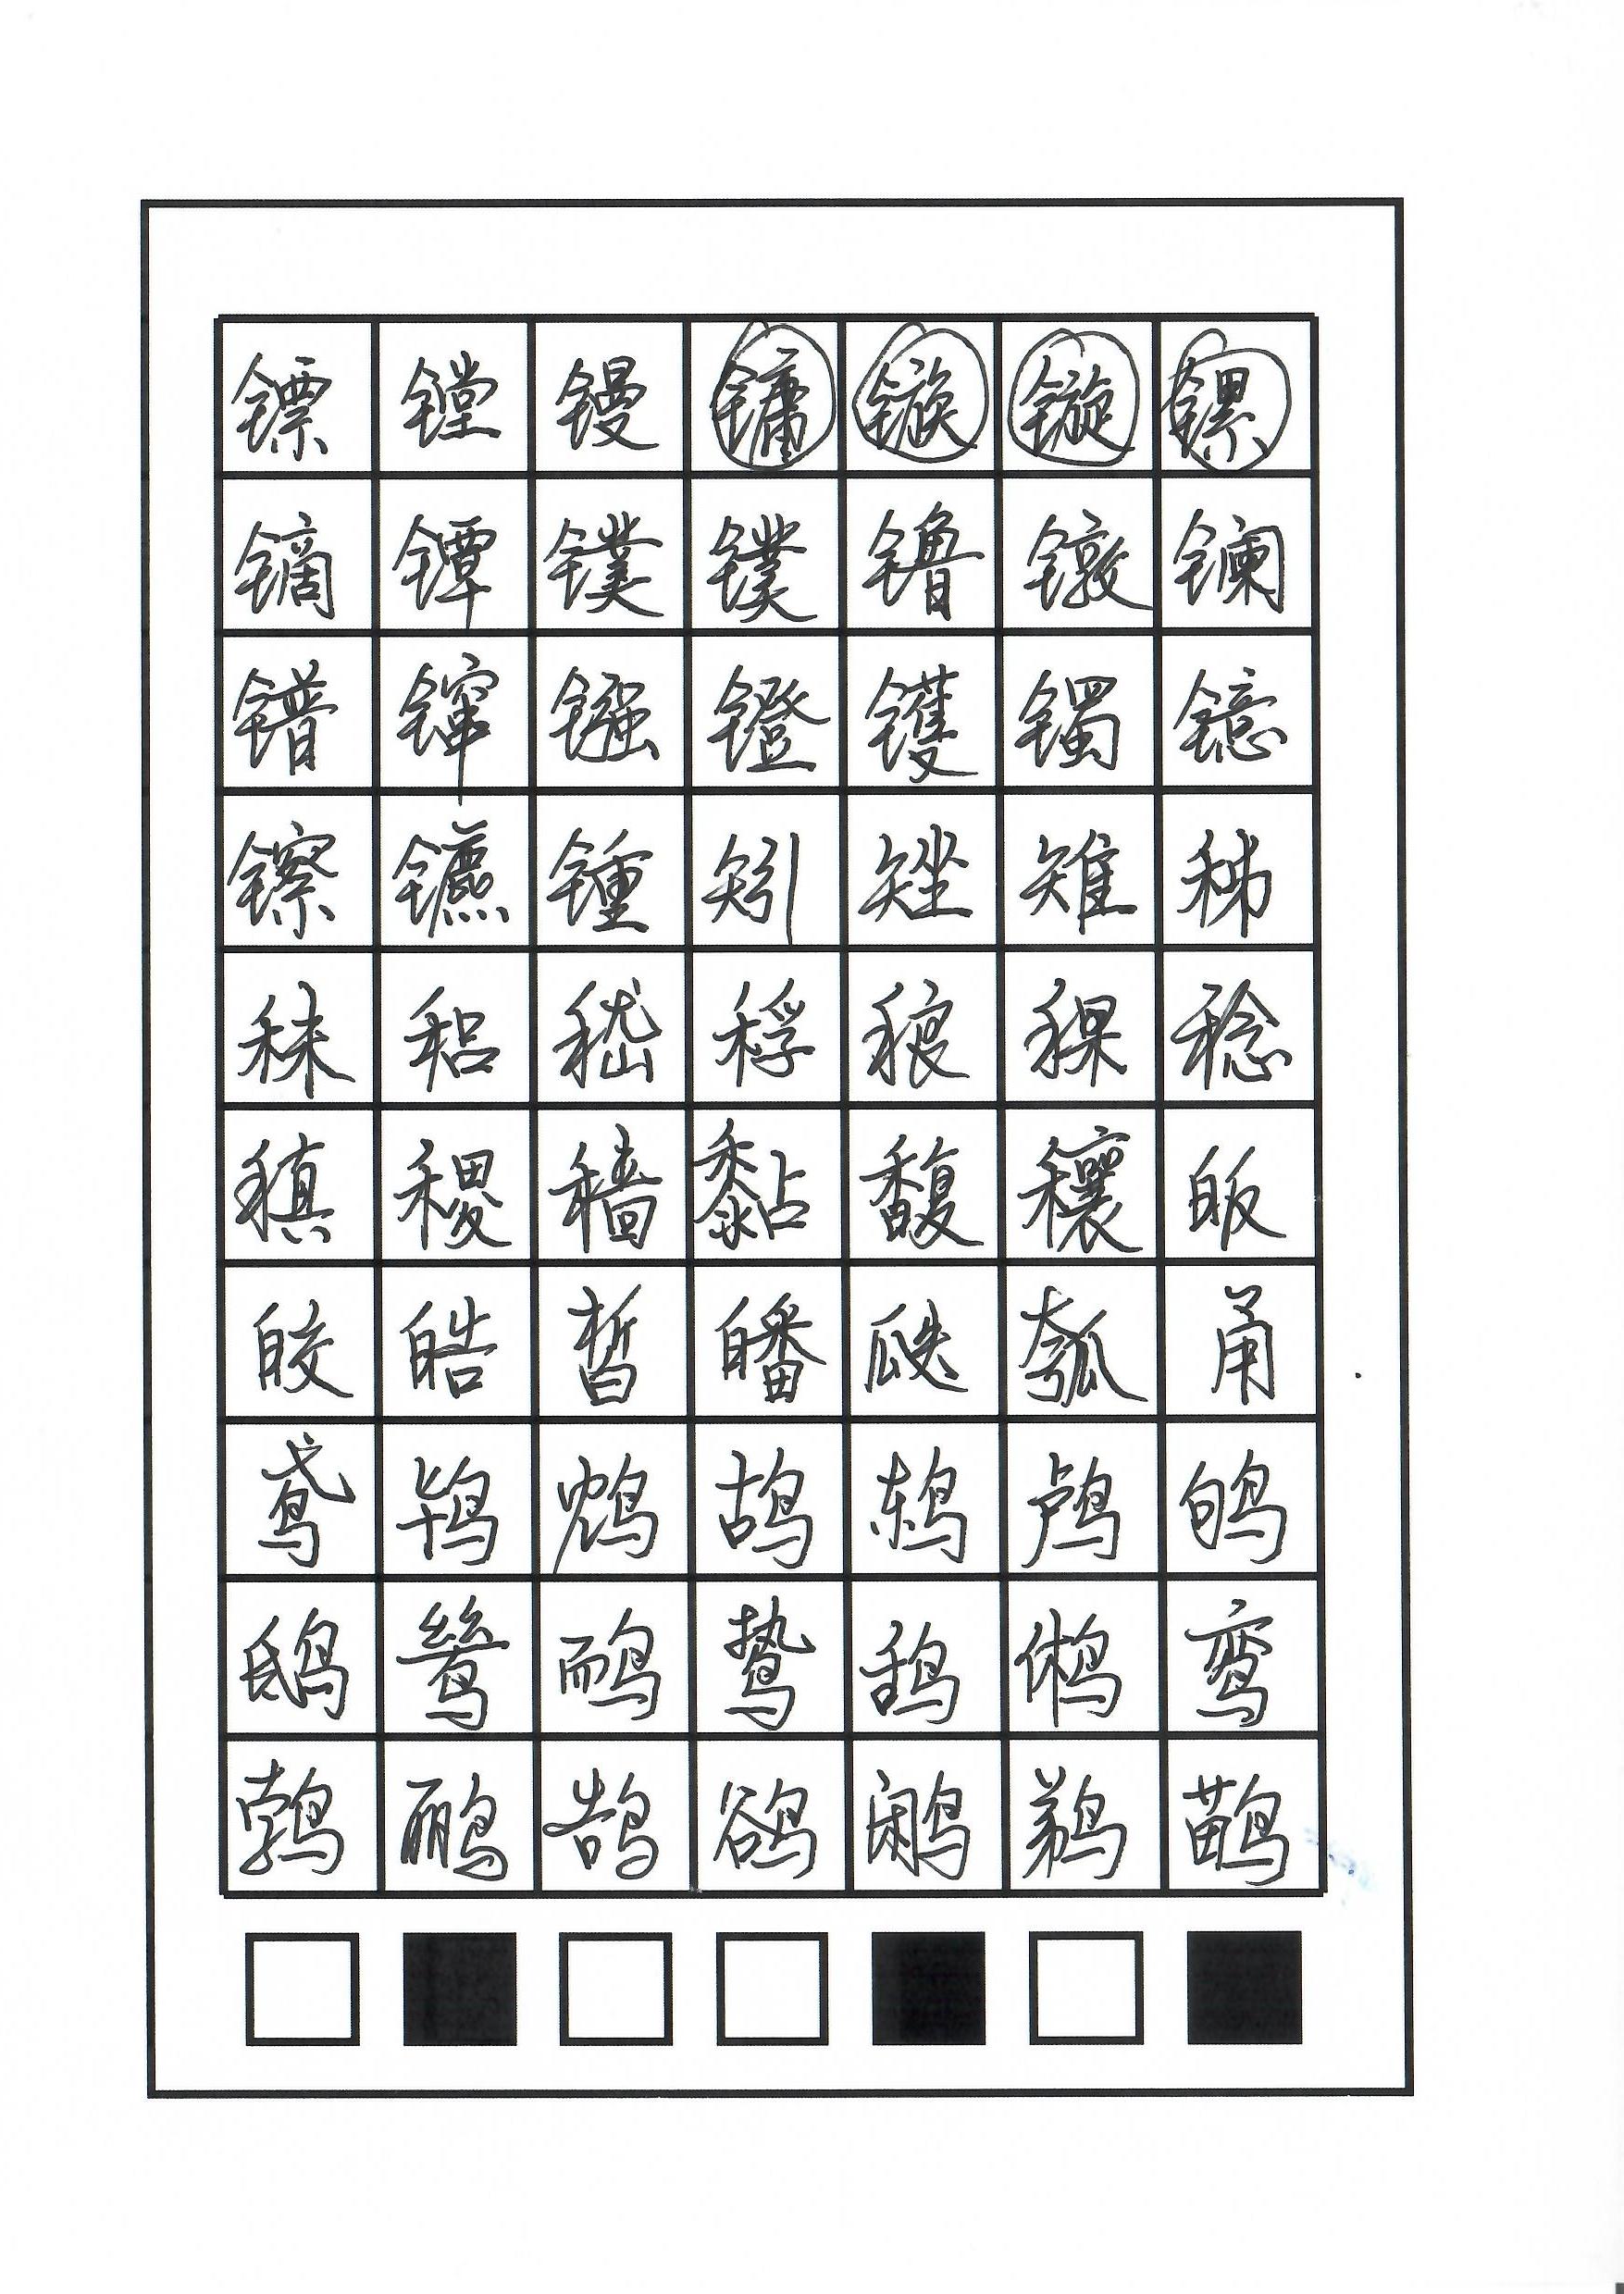 镖镗镘镛镞镟镙
镝镡镤镤镥镦镧
镨镩镪镫镬镯镱
镲镳锺矧矬雉秭
秣稆嵇稃稂稞稔
稹稷穑黏馥穰皈
皎皓皙皤瓞瓠甬
鸢鸨鸩鸪鸫鸬鸲
鸱鸶鸸鸷鸹鸺鸾
鹁鹂鹄鹆鹇鹈鹋